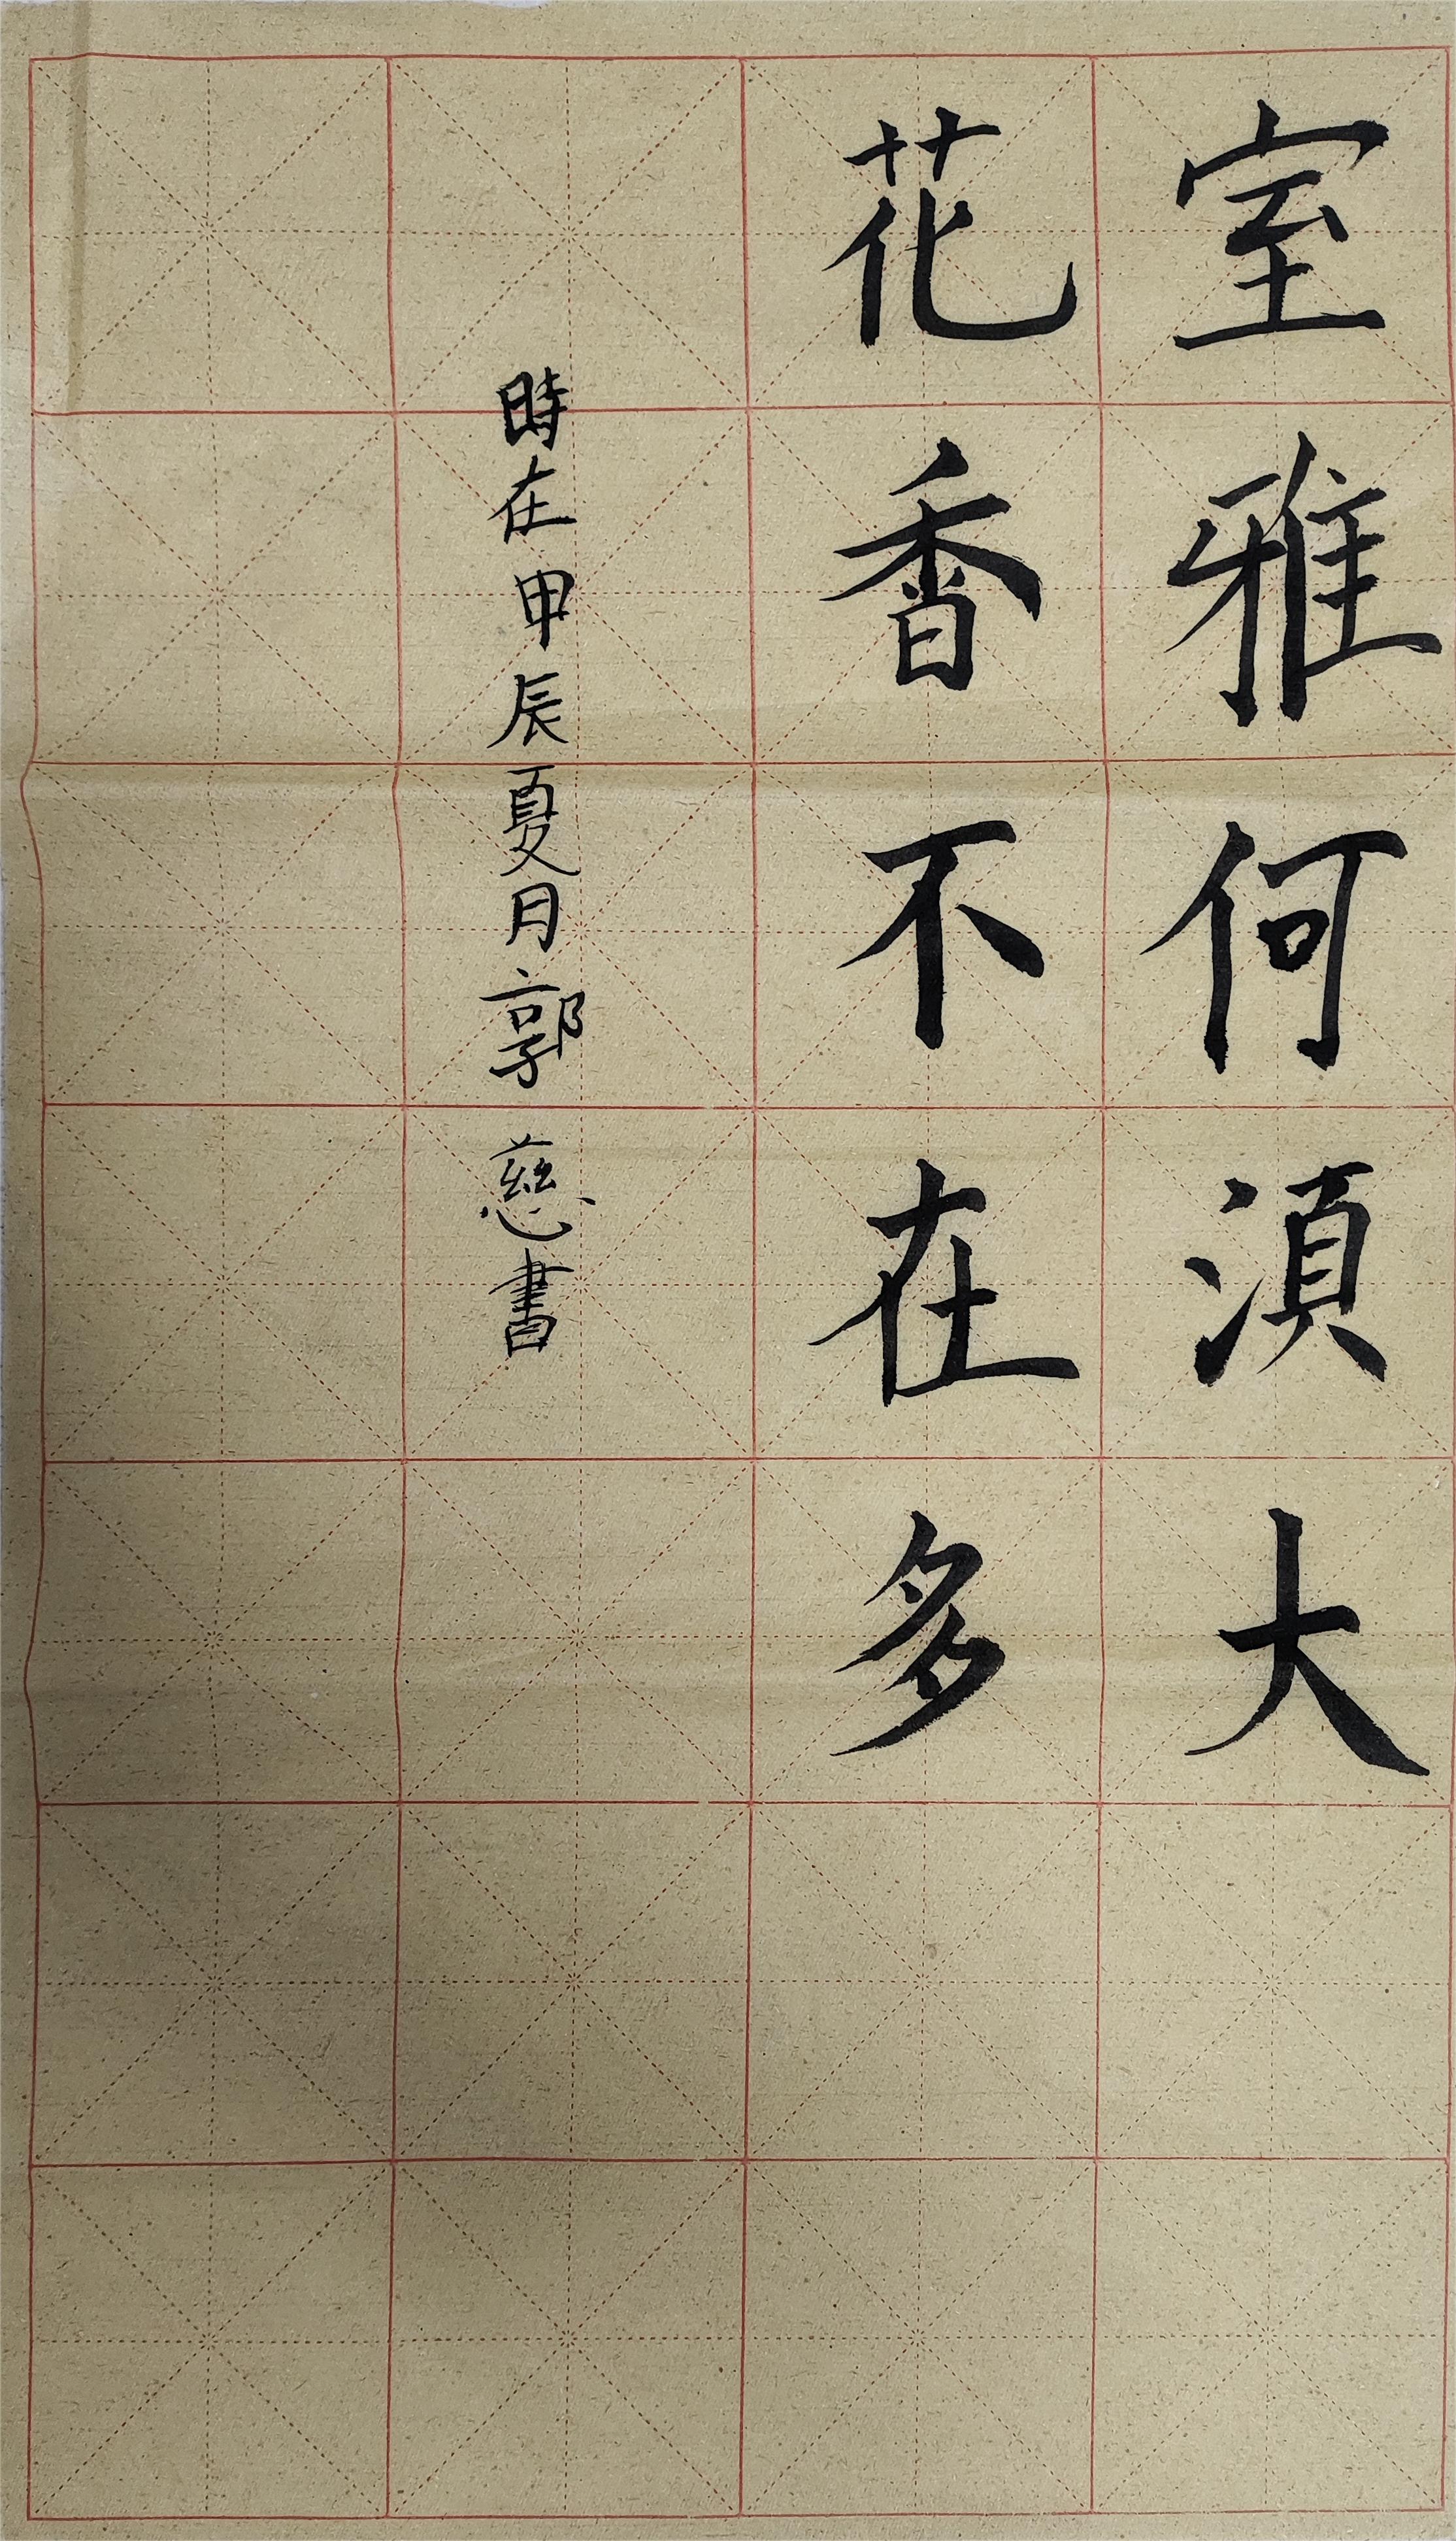 室雅何湏大
花香不在多
時在甲辰夏月郭慈書